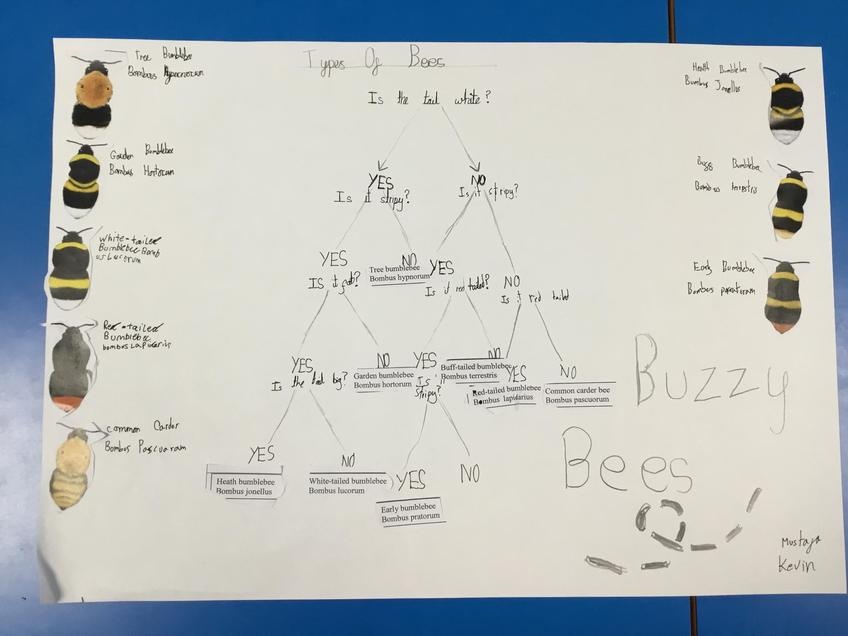 Types Of Bees
Tree Bumblebee
Bombus Hypnorum
Garden Bumblebee
Bombus Hortorum
White-tailed
Bumblebee Bomb
us Lucorum
Red-tailed
Bumblebee
bombus Lapidarius
common Carder
Bombus Pascuorum
Is the tail white?
YES
Is it stripy?
NO
Is it stripy?
YES
NO
Tree bumblebee
Bombus hypnorum
YES
Is it red tailed?
NO
Is it red tailed
YES
Is the
big?
NO
Garden bumblebee
Bombus hortorum
YES
Is it
stripy?
NO
Buff-tailed bumblebee
Bombus terrestris
YES
Red-tailed bumblebee
Bombus lapidarius
NO
Common carder bee
Bombus pascuorum
YES
Heath bumblebee
Bombus jonellus
NO
White-tailed bumblebee
Bombus lucorum
YES
Early bumblebee
Bombus pratorum
NO
Heath Bumblebee
Bumbus Jonellus
Bumblebee
Bombus
Early Bumblebee
Bombus
Buzzy
Bees
Mustafa
Kevin